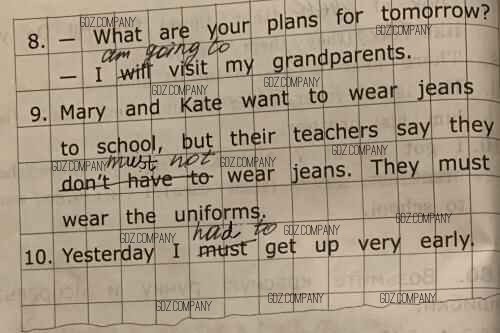 8. — What are your plans for tomorrow?
am going to
— I will visit my grandparents.
9. Mary and Kate want to wear jeans
to school, but their teachers say they
must not
don't have to wear jeans. They must
wear the uniforms.
had to
10. Yesterday I must get up very early.
GDZ.COMPANY
GDZ.COMPANY
GDZ.COMPANY
GDZ.COMPANY
GDZ.COMPANY
GDZ.COMPANY
GDZ.COMPANY
GDZ.COMPANY
GDZ.COMPANY
GDZ.COMPANY
GDZ.COMPANY
GDZ.COMPANY
GDZ.COMPANY
GDZ.COMPANY